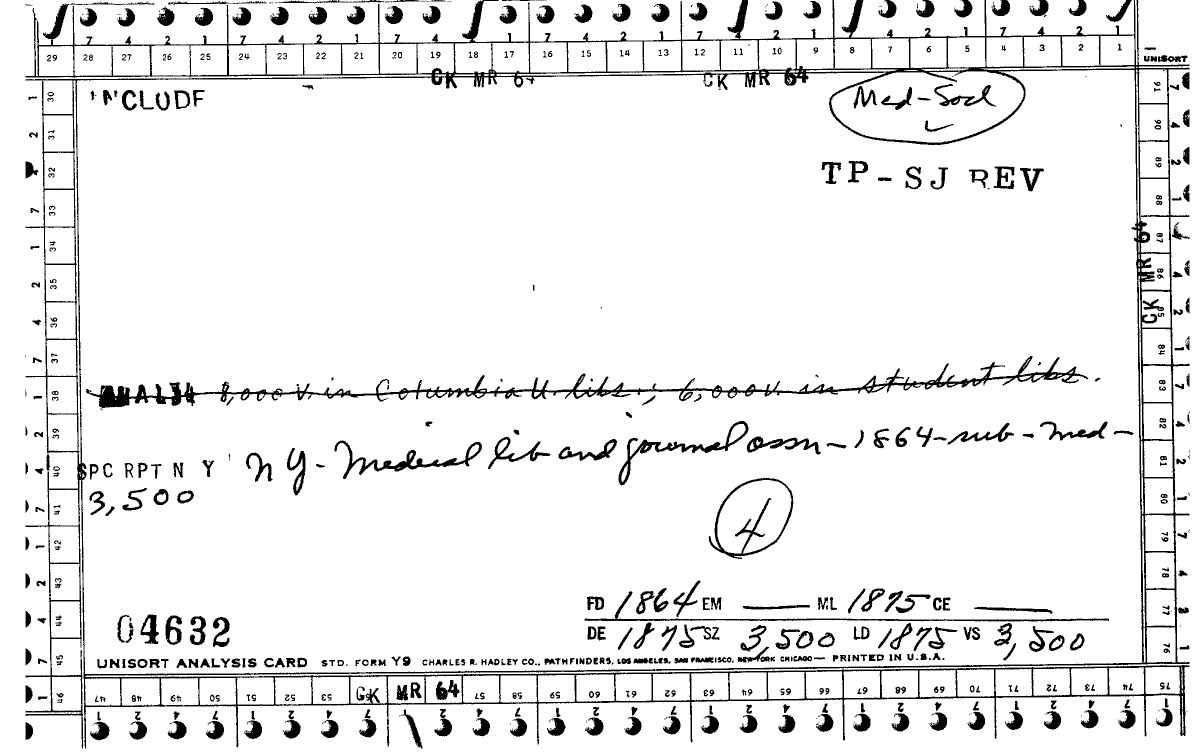 7 4 2 1 7 4 2 1 7 4 2 1 7 4 2 1 7 4 2 1 7 4 2 1
29 28 27 26 25 24 23 22 21 20 19 18 17 16 15 14 13 12 11 10 9 8 7 6 5 4 3 2 1
UNISORT
CK MR 64 CK MR 64
INCLUDE
Med-Socl
TP-SJ REV
CK MR 64
8,000 v. in Columbia U. libs.; 6,000 v. in student libs.
SPC RPT N Y NY- Medical lib and journal assn-1864-sub-med-
3,500
4
FD 1864 EM ML 1875 CE
04632
DE 1875 SZ 3,500 LD 1875 VS 3,500
UNISORT ANALYSIS CARD STD. FORM Y9 CHARLES R. HADLEY CO., PATHFINDERS, LOS ANGELES, SAN FRANCISCO, NEW YORK CHICAGO — PRINTED IN U.S.A.
47 48 49 50 51 52 53 CK MR 64 57 58 59 60 61 62 63 64 65 66 67 68 69 70 71 72 73 74 75